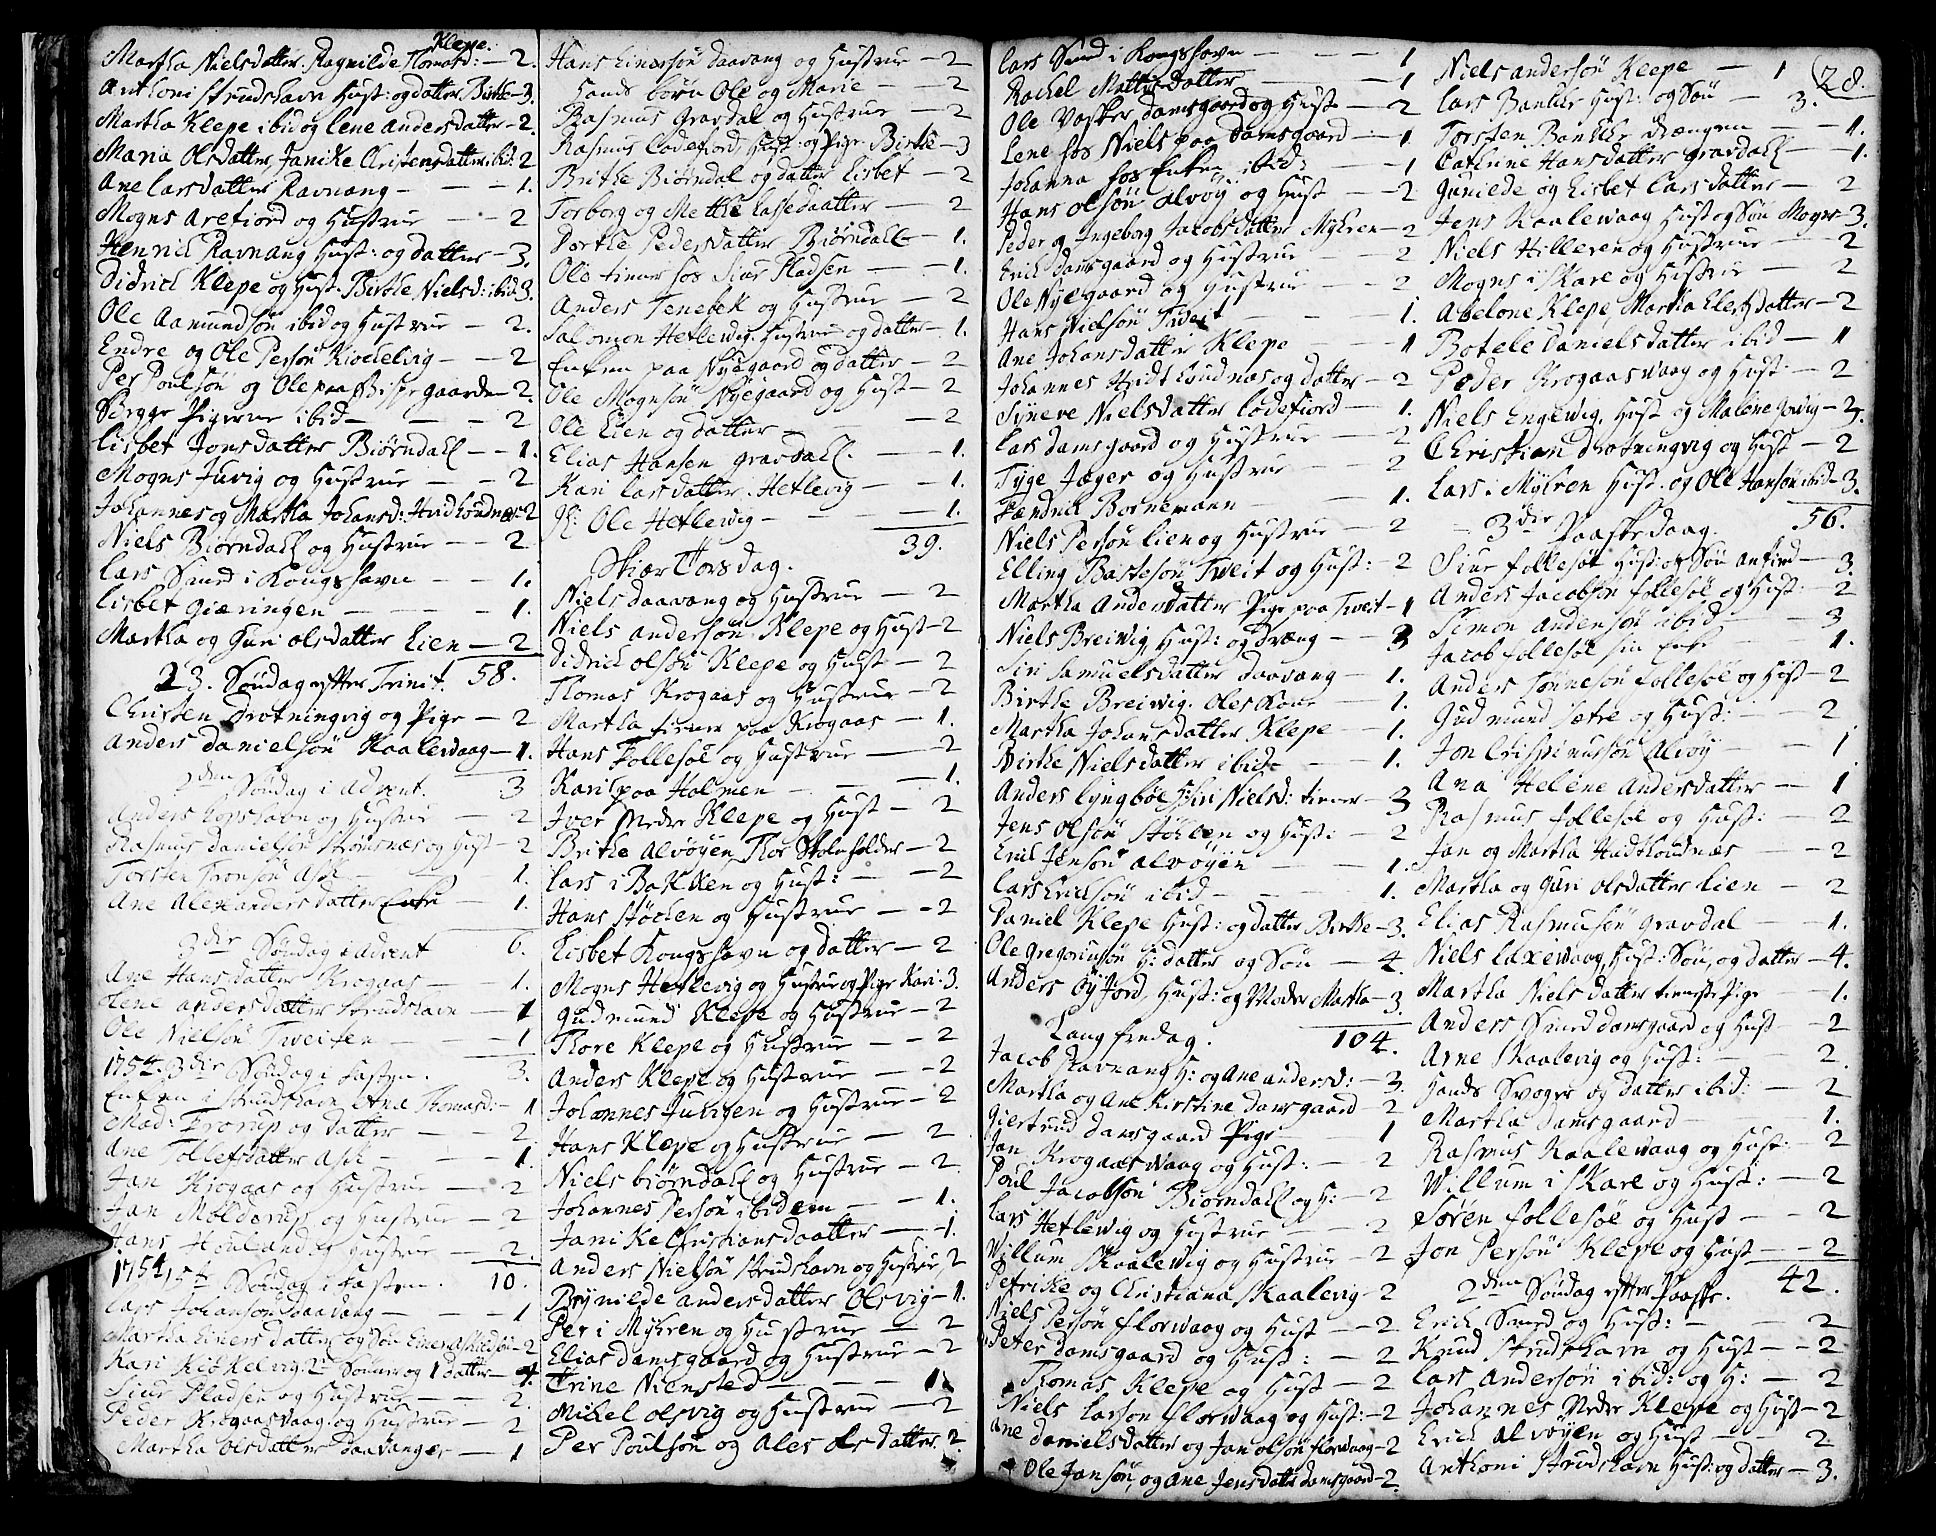 Klepe.
Martha Nielsdatter. Ragnilde Thomasd: — 2.
Anthoni Strudshavn Hust: og datter Birthe — 3.
Martha Klepe ibid og Lene Andersdatter — 2.
Maria Olsdatter, Janike Christensdatter ibid: 2
Ane Larsdatter Ravnang — — — 1.
Mogns Arefiord og Hustrue — — 2
Henrich Ravnang Hust: og datter — 3.
Didrich Klepe og Hust. Birthe Nielsd: ibid 3.
Ole Aamundsön ibid og Hustrue — 2.
Endre og Ole Persön Kiökkelvig — — 2
Per Poulsön og Ole paa Bispegaarden 2.
Begge Pigerne ibid — — — 2
Lisbet Jonsdatter Biørndall — — 1.
Mogns Juvig og Hustrue — — 2
Johannes og Martha Johansd: Hvidhoudnæs 2
Niels Biørndall og Hustrue — — 2
Lars Smed i Kongshavn — — 1.
Lisbet Giæringen — — — 1.
Martha og Guri Olsdatter Lien — 2
23. Søndag efter Trinit. 58.
Christen Drotningvig og Pige — 2
Anders Danielsön Kaalevaag — 1.
2den Søndag i Advent. 3
Anders Kopshavn og Hustrue — 2
Rasmus Danielsön Stromsnæs og Hust — 2
Torsten Tronsön Ask — 1.
Ane Alexandersdatter Enke — 1.
3die Søndag i Advent 6.
Ane Hansdatter Krogaas — — 1.
Lene Andersdatter Strudshavn — 1
Ole Nielsön Tweiten — — 1
1754. 3die Søndag i Fasten. 3.
Enken i Strudshavn Ane Thomasd: — 1
Mad: Frorup og datter — — 2
Ane Tollefsdatter Ask — — — 1.
Jan Krogaas og Hustrue — 2
Jan Møldorup og Hustrue — 2
Hans Houland og Hustrue — 2.
1754 5te Søndag i Fasten. 10.
Lars Johansön Daavang — — 1
Martha Einersdatter og Sön Einer Askildsön — 2
Kari Kiökkelvig. 2 Sönner og 1 datter — 4.
Siur Pladsen og Hustrue — — 2.
Peder Krogaasvaag og Hustrue — 2
Martha Olsdatter Daavanger — 1
Hans Einersön Daavang og Hustrue — 2
Hands børn Ole og Marie — — 2
Rasmus Gravdal og Hustrue — 2
Rasmus Lodefiord, Hust: og Pige Birthe — 3
Brithe Biørndal og datter Lisbet — 2
Torborg og Mette Lassedaatter — 2
Dorthe Pedersdatter Biørndall — 1.
Ole tiener hos Siur Pladsen — — 1.
Anders Tenebek og Hustrue — 2
Salomon Hetlevig. Hustrue og datter — 1.
Enken paa Nÿegaard og datter — 2
Ole Mognsön Nÿegaard og Hust — 2
Ole Lien og datter — — — 2
Elias Hansen Gravdall. — — 1.
Kari Larsdatter Hetlevig — — 1.
Ole Hetlevig — — — 1.
39.
Skiær Torsdag.
Niels Daavang og Hustrue — — 2
Niels Andersön Klepe og Hust — 2
Didrich Olsön Klepe og Hust — 2
Thomas Krogaas og Hustrue — 2
Martha tiener paa Krogaas — 1.
Hans Follesøe og Hustrue — 2
Kari paa Holmen — — — 1.
Iver Nedre Klepe og Hust — 2
Brithe Alvøyen, Thor Stoleholder — 2
Lars i Bakken og Hust: — — 2
Hans Støchen og Hustrue — — 2
Lisbet Kongshavn og datter — 2
Mogns Hetlevig og Hustrue og Pige Kari: 3.
Gudmund Klepe og Hustrue — 2
Thore Klepe og Hustrue — — 2
Anders Klepe og Hustrue — — 2
Johannes Juvigen og Hustrue — 2
Hans Klepe og Hustrue — — 2
Niels Biørndall og Hustrue — 2
Johannes Persön ibidem — — 1.
Janike Christiansdaatter — — 1.
Anders Nielsön Strudshavn og Hustrue 2
Brÿnilde Andersdatter Olsvig — 1.
Per i Mÿhren og Hustrue — — 2
Elias Damsgaard og Hustrue — 2
Trine Niensted — — — 1.
Mikel Olsvig og Hustrue — — 2
Per Poulsön og Ales Olsdatter. 2
Lars Smed i Kongshavn — — — 1
Rachel Mattisdatter — — — 1
Ole Vasker Damsgaard og Hust — 2
Lene hos Niels paa Damsgaard — 1
Johanna hos Enken ibid: — — 1
Hans Olsön Alvöÿ og Hust — 2
Peder og Ingeborg Jacobsdatter Mÿhren — 2
Erich Damsgaard og Hustrue — — 2
Ole Nÿegaard og Hustrue — — 2
Hans Nielsön Tweit — — — 1.
Ane Johansdatter Klepe — — 1
Johannes Hvidthoudnæs og datter — 2
Synneve Nielsdatter Lodefiord — 1.
Lars Damsgaard og Hustrue — 2
Tÿge Jæger og Hustrue — — 2
Hendrich Bornemann — — 1.
Niels Persön Lien og Hustrue — 2
Elling Bastesön Tweit og Hust: — 2
Martha Andersdatter Pige paa Tweit — 1
Niels Breivig Hust: og Dreng — 3
Siri Samuelsdatter Daavang — 1.
Birthe Breiwig. Oles Kone — 1.
Martha Johansdatter Klepe — 1.
Birthe Nielsdatter ibid — — 1.
Anders Lyngbøe, Siri Nielsd: tiener — 3
Jens Olsön Støhlen og Hust: — 2
Erich Jensön Alvöyen — — 1.
Lars Erichsön ibid — — — 1.
Daniel Klepe Hust: og datter Birthe — 3.
Ole Gregoriusön H: datter og Sön — 4.
Anders Öÿjord, Hust: og Moder Martha — 3.
Lang fredag. 104.
Jacob Ravnang H: og Ane Andersd: — 3.
Martha og Ane Kirstine Damsgaard — 2
Giertrud Damsgaard Pige — 1
Jan Krogaasvaag og Hust: — 2
Poul Jacobsön Biørndall og H: — 2
Lars Hetlewig og Hustrue — — 2
Willum Skaalevig og Hustrue — 2
Petrike og Christiana Skaalevig — 2
Niels Persön Florvaag og Hust — 2
Peter Damsgaard og Hust: — 2
Thomas Klepe og Hust — 2
Niels Larsön Florvaag og Hust: — 2
Ane Danielsdatter og Jan Olsön Florvaag — 2
Ole Jansön, og Ane Jensdatter Damsgaard — 2.
28.
Niels Andersön Klepe — 1
Lars Bankke Hust: og Sön — 3.
Torsten Bankke drængen — — 1.
Cathrine Hansdatter Gravdall — — 1.
Gunilde og Lisbet Larsdatter — 2
Jens Kaalevaag Hust og Sön Mogns — 3.
Niels Hilleren og Hustrue — — 2
Mogns i Skare og Hustrue — 2
Abelone Klepe, Martha Elertsdatter — 2
Botele Danielsdatter ibid — 1
Peder Krogaasvaag og Hust — 2
Niels Engewig, Hust og Malene Juvig — 3.
Christian Drotningvig og Hust — 2
Lars i Mÿhren Hust. og Ole Hansön ibid — 3.
3die Paaskedaag. 56.
Siur Follesøe Hust: og Sön Anfind — 3.
Anders Jacobsön Follesøe og Hust: — 2
Simon Andersön ibid — — 3
Jacob Follesøe sin Enke — 1.
Anders Tönnesön Follesøe og Hust — 2
Gudmund Sætre og Hust: — 2
Jon Crispinusön Alvöÿ — — 1
Ana Helene Andersdatter — — 1
Rasmus Follesøe og Hust: — 2
Jan og Martha Hvidthoudnæs — — 2
Martha og Guri Olsdatter Lien — 2
Elias Rasmusön Gravdal — — 1.
Niels Laxevaag, Hust: Sön, og datter — 4.
Martha Nielsdatter tieneste Pige — 1.
Anders Smed Damsgaard og Hust — 2
Arne Skaalevig og Hust: — — 2.
Hands Svoger og datter ibid: — 2
Martha Damsgaard — 1.
Rasmus Kaalevaag og Hust: — 2
Willum i Skare og Hust: — 2
Søren Follesøe og Hust — — 2
Jon Persön Klepe og Hust — — 2
2den Søndag efter Paaske. 42.
Erich Smed og Hust: — — 2
Knud Strudshavn og Hust — — 2
Lars Andersön ibid: og H: — 2
Johannes Nedre Klepe og Hust — 2
Erich Alvöyen og Hust — — 2
Anthoni Strudshavn Hust: og datter — 3.